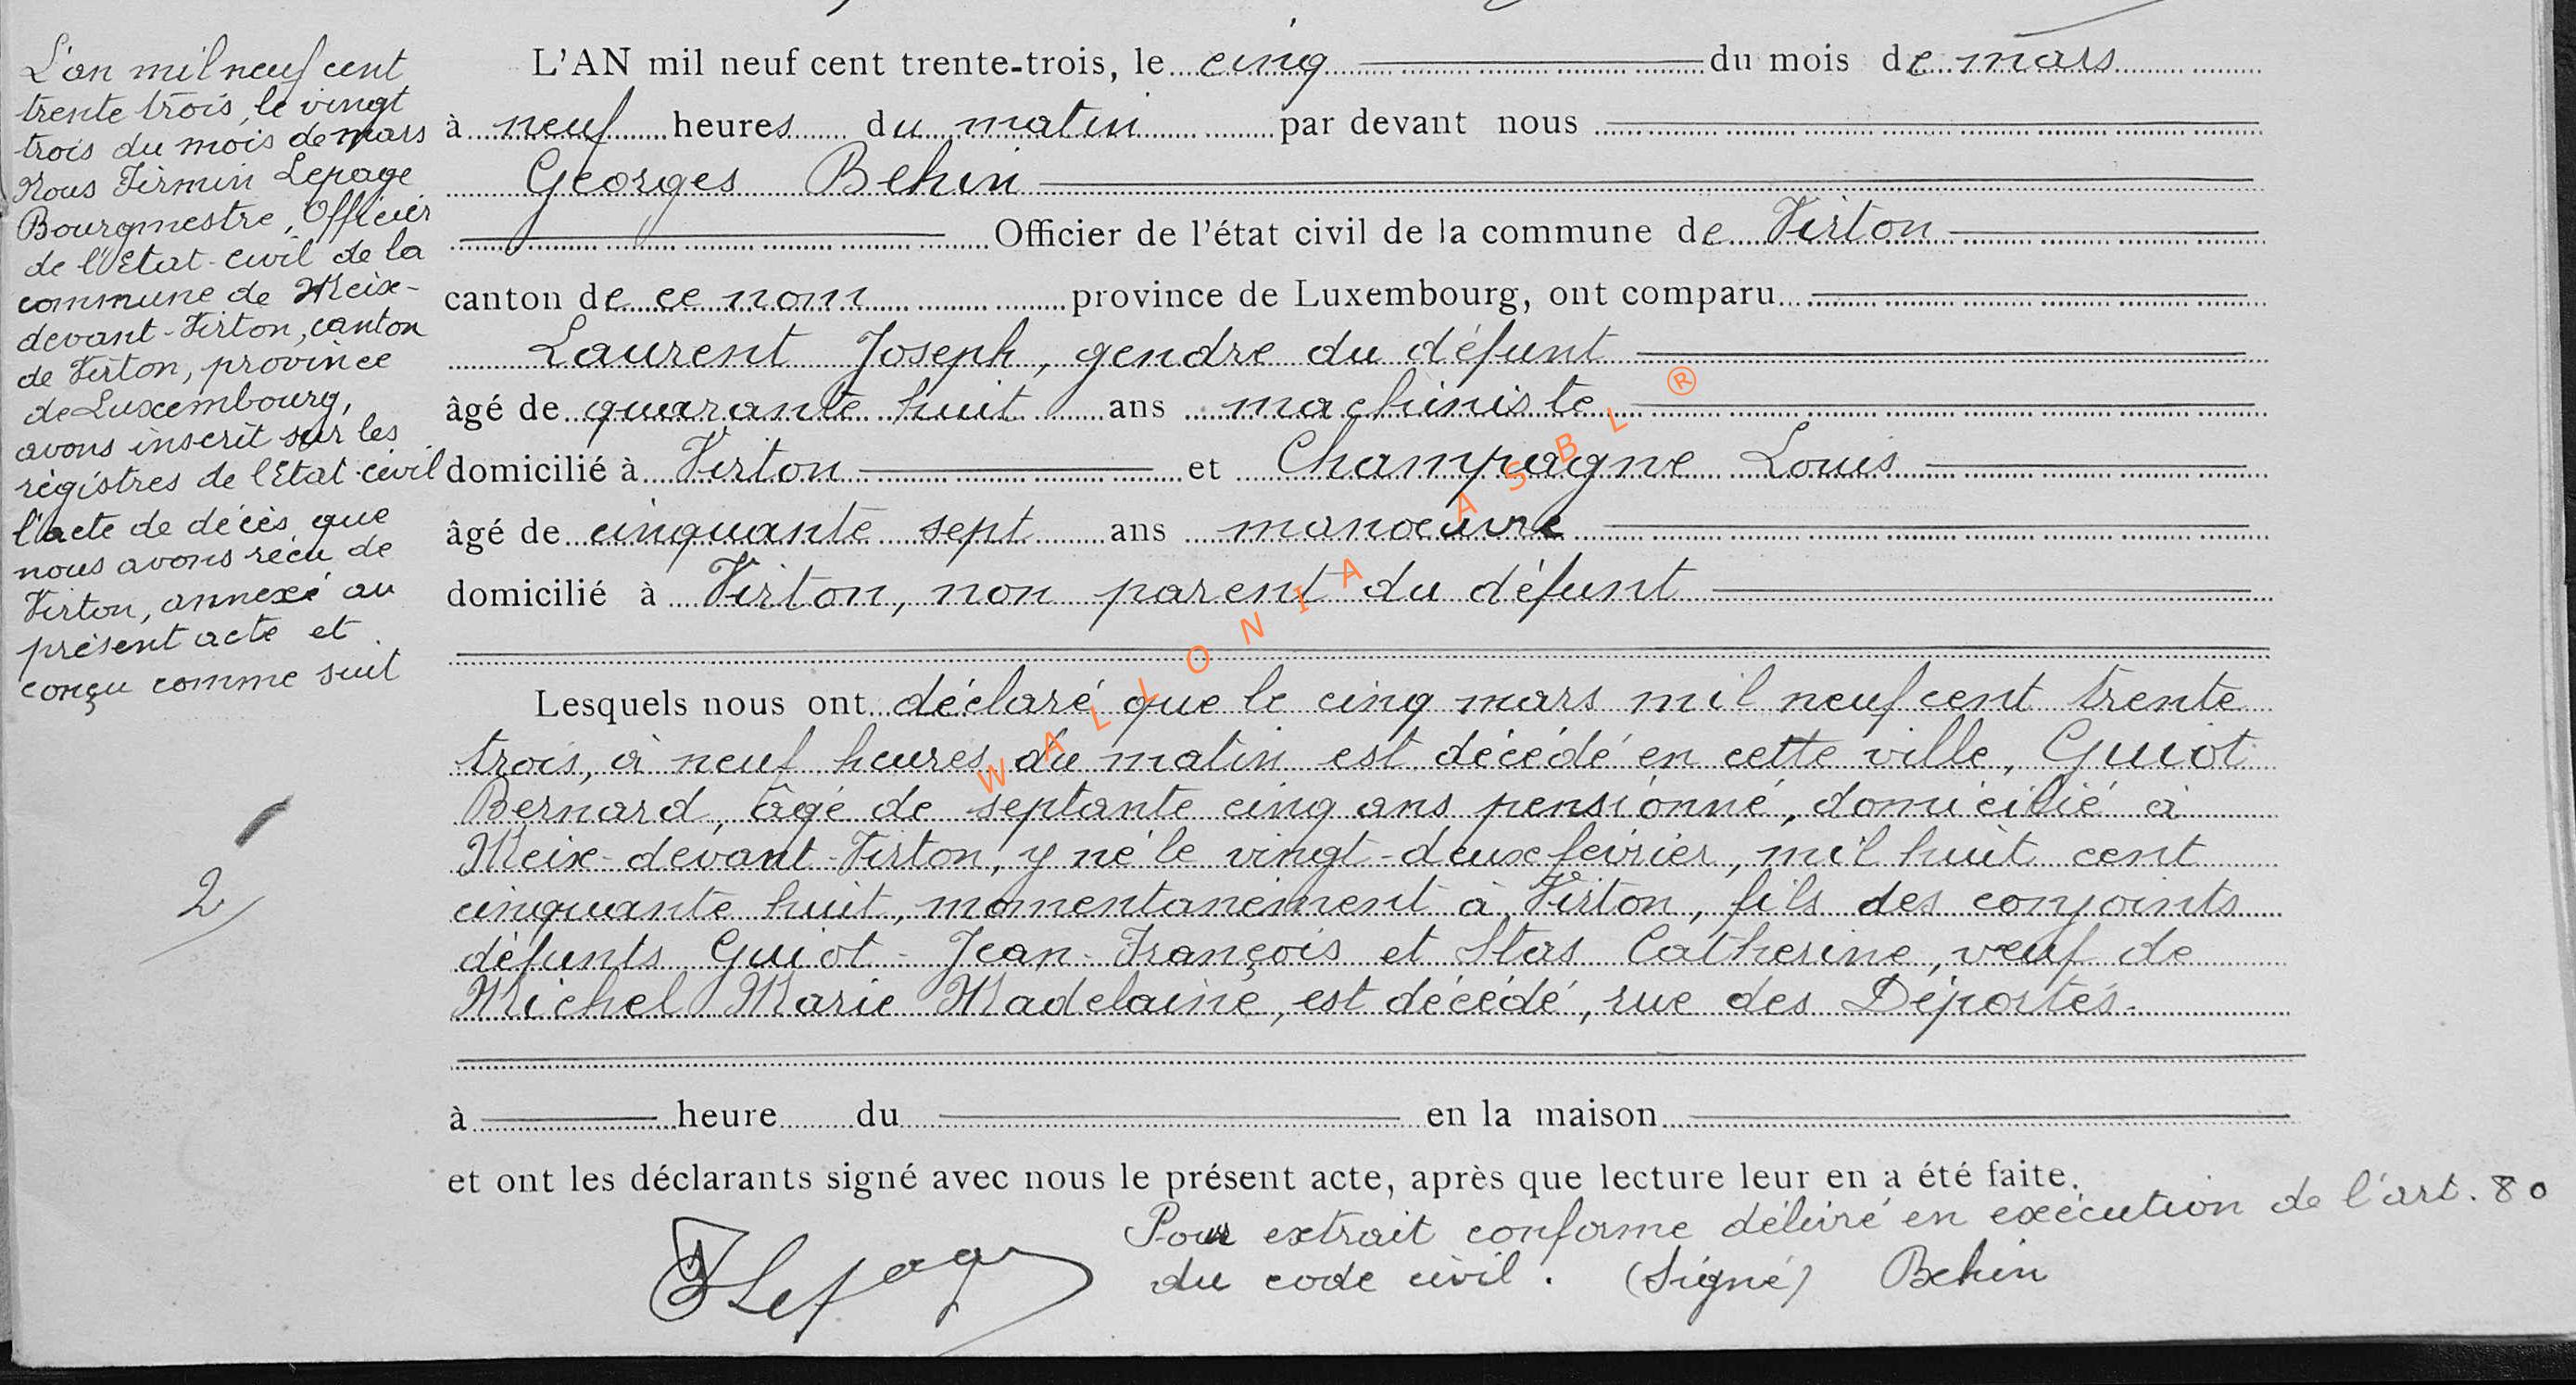 L'an mil neuf cent
trente trois, le vingt
trois du mois de mars
Nous Firmin Lepage
Bourgmestre, Officier
de l'Etat-civil de la
commune de Meix-
devant-Virton, canton
de Virton, province
de Luxembourg,
avons inscrit sur les
régistres de l'Etat-civil
l'acte de décès que
nous avons récu de
Virton, annexé au
présent acte et
conçu comme suit
2
L'AN mil neuf cent trente-trois, le cinq du mois de mars
à neuf heures du matin par devant nous
Georges Behin
Officier de l'état civil de la commune de Virton
canton de ce nom province de Luxembourg, ont comparu
Laurent Joseph, gendre du défunt
âgé de quarante huit ans machiniste
domicilié à Virton et Champagne Louis
âgé de cinquante sept ans manoeuvre
domicilié à Virton, non parent du défunt
Lesquels nous ont déclaré que le cinq mars mil neuf cent trente
trois, à neuf heures du matin est décédé en cette ville, Guiot
Bernard, âgé de septante cinq ans pensionné, domicilié à
Meix-devant-Virton, y né le vingt-deux février, mil huit cent
cinquante huit, momentanément à Virton, fils des conjoints
défunts Guiot - Jean-François et Stas Catherine, veuf de
Michel Marie Madelaine, est décédé, rue des Déportés.
à heure du en la maison
et ont les déclarants signé avec nous le présent acte, après que lecture leur en a été faite.
Pour extrait conforme délivré en exécution de l'art. 80
du code civil. (Signé) Behin
FLepage
WALLONIA ASBL ®